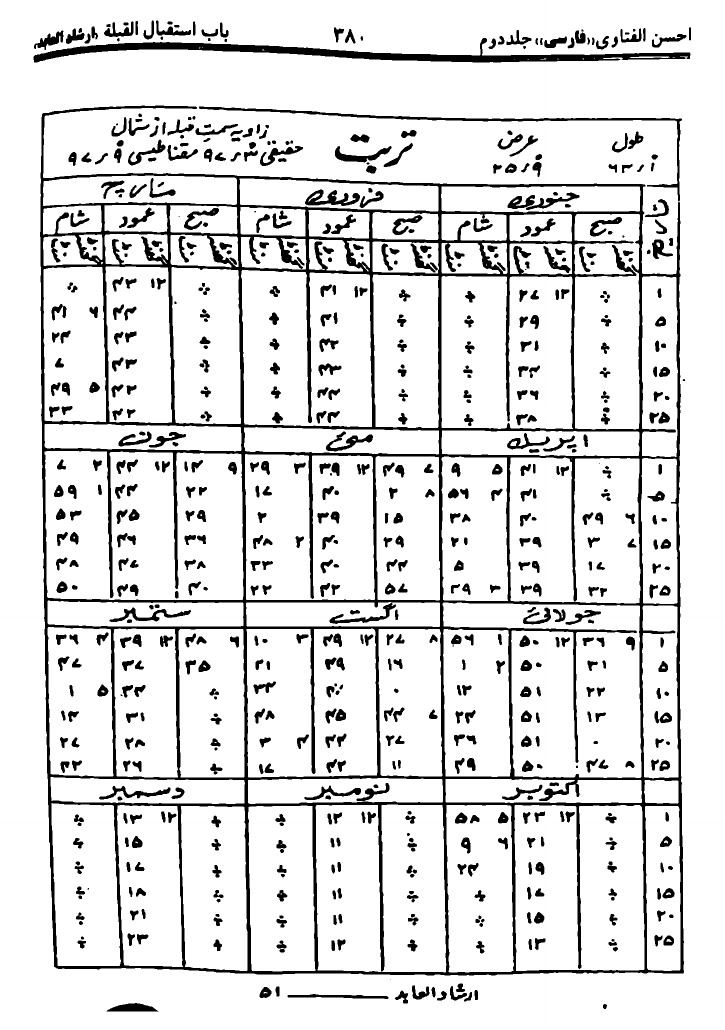 احسن الفتاوی ’’فارسی‘‘ جلد دوم ۳۸۰ باب استقبال القبلة ’’ارشاد العابد‘‘
طول عرض تربت زاویہ سمت قبلہ از شمال
۶۳/۱ ۲۵/۹ حقیقی ۹۷/۳ مقناطیسی ۹۷/۹
تاریخ جنوری فروری مارچ
صبح عمود شام صبح عمود شام صبح عمود شام
گھنٹہ منٹ گھنٹہ منٹ گھنٹہ منٹ گھنٹہ منٹ گھنٹہ منٹ گھنٹہ منٹ گھنٹہ منٹ گھنٹہ منٹ گھنٹہ منٹ
۱ ÷ ۱۲ ۲۷ ÷ ÷ ۱۲ ۴۱ ÷ ÷ ۱۲ ۴۳ ÷
۵ ÷ ۲۹ ÷ ÷ ۴۱ ÷ ÷ ۴۴ ۶ ۴۱
۱۰ ÷ ۳۱ ÷ ÷ ۴۲ ÷ ÷ ۴۳ ۲۴
۱۵ ÷ ۳۴ ÷ ÷ ۴۳ ÷ ÷ ۴۳ ۷
۲۰ ÷ ۳۶ ÷ ÷ ۴۴ ÷ ÷ ۴۳ ۵ ۴۹
۲۵ ÷ ۳۸ ÷ ÷ ۴۴ ÷ ÷ ۴۲ ۳۳
اپریل مئی جون
۱ ÷ ۱۲ ۴۱ ۵ ۹ ۷ ۴۹ ۱۲ ۳۹ ۳ ۲۹ ۹ ۱۴ ۱۲ ۴۴ ۲ ۷
۵ ÷ ۴۱ ۴ ۵۶ ۸ ۲ ۴۰ ۱۷ ۲۲ ۴۴ ۱ ۵۹
۱۰ ۶ ۴۹ ۴۰ ۳۸ ۱۵ ۳۹ ۲ ۲۹ ۴۵ ۵۳
۱۵ ۷ ۳ ۳۹ ۲۱ ۲۹ ۴۰ ۲ ۴۸ ۳۶ ۴۶ ۴۹
۲۰ ۱۷ ۳۹ ۵ ۴۴ ۴۰ ۳۳ ۳۸ ۴۷ ۴۸
۲۵ ۳۲ ۳۹ ۳ ۴۹ ۵۷ ۴۲ ۲۲ ۴۰ ۴۹ ۵۰
جولائی اگست ستمبر
۱ ۹ ۳۶ ۱۲ ۵۰ ۱ ۵۶ ۸ ۲۷ ۱۲ ۴۹ ۳ ۱۰ ۶ ۴۸ ۱۲ ۳۹ ۴ ۳۶
۵ ۳۱ ۵۰ ۲ ۱ ۱۶ ۴۹ ۲۱ ۳۵ ۳۷ ۴۷
۱۰ ۲۲ ۵۱ ۱۲ ۰ ۴۷ ۳۴ ÷ ۳۴ ۵ ۱
۱۵ ۱۳ ۵۱ ۲۴ ۷ ۴۴ ۴۵ ۴۸ ÷ ۳۱ ۱۴
۲۰ ۰ ۵۱ ۳۶ ۲۷ ۴۴ ۴ ۳ ÷ ۲۸ ۲۷
۲۵ ۸ ۴۷ ۵۰ ۴۹ ۱۱ ۴۲ ۱۷ ÷ ۲۶ ۴۲
اکتوبر نومبر دسمبر
۱ ÷ ۱۲ ۲۳ ۵ ۵۸ ÷ ۱۲ ۱۲ ÷ ÷ ۱۲ ۱۳ ÷
۵ ÷ ۲۱ ۶ ۹ ÷ ۱۱ ÷ ÷ ۱۵ ÷
۱۰ ÷ ۱۹ ۲۴ ÷ ۱۱ ÷ ÷ ۱۷ ÷
۱۵ ÷ ۱۷ ÷ ÷ ۱۱ ÷ ÷ ۱۸ ÷
۲۰ ÷ ۱۵ ÷ ÷ ۱۱ ÷ ÷ ۲۱ ÷
۲۵ ÷ ۱۳ ÷ ÷ ۱۲ ÷ ÷ ۲۳ ÷
ارشاد العابد ــــــــــ ۵۱